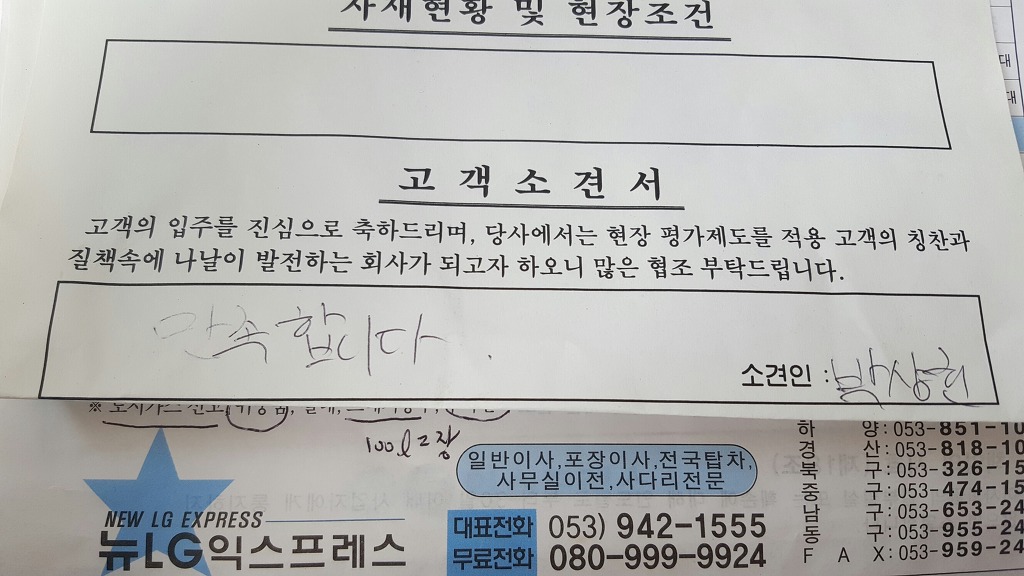 자재현황 및 현장조건
고 객 소 견 서
고객의 입주를 진심으로 축하드리며, 당사에서는 현장 평가제도를 적용 고객의 칭찬과
질책속에 나날이 발전하는 회사가 되고자 하오니 많은 협조 부탁드립니다.
만족합니다.
소견인 : 박상현
100ℓ 2장
일반이사,포장이사,전국탑차,
사무실이전,사다리전문
NEW LG EXPRESS
뉴LG익스프레스
대표전화 053) 942-1555
무료전화 080-999-9924
하 양:053-851-10
경 산:053-818-10
북 구:053-326-15
중 구:053-474-15
남 구:053-653-24
동 구:053-955-24
F A X:053-959-24
대
대